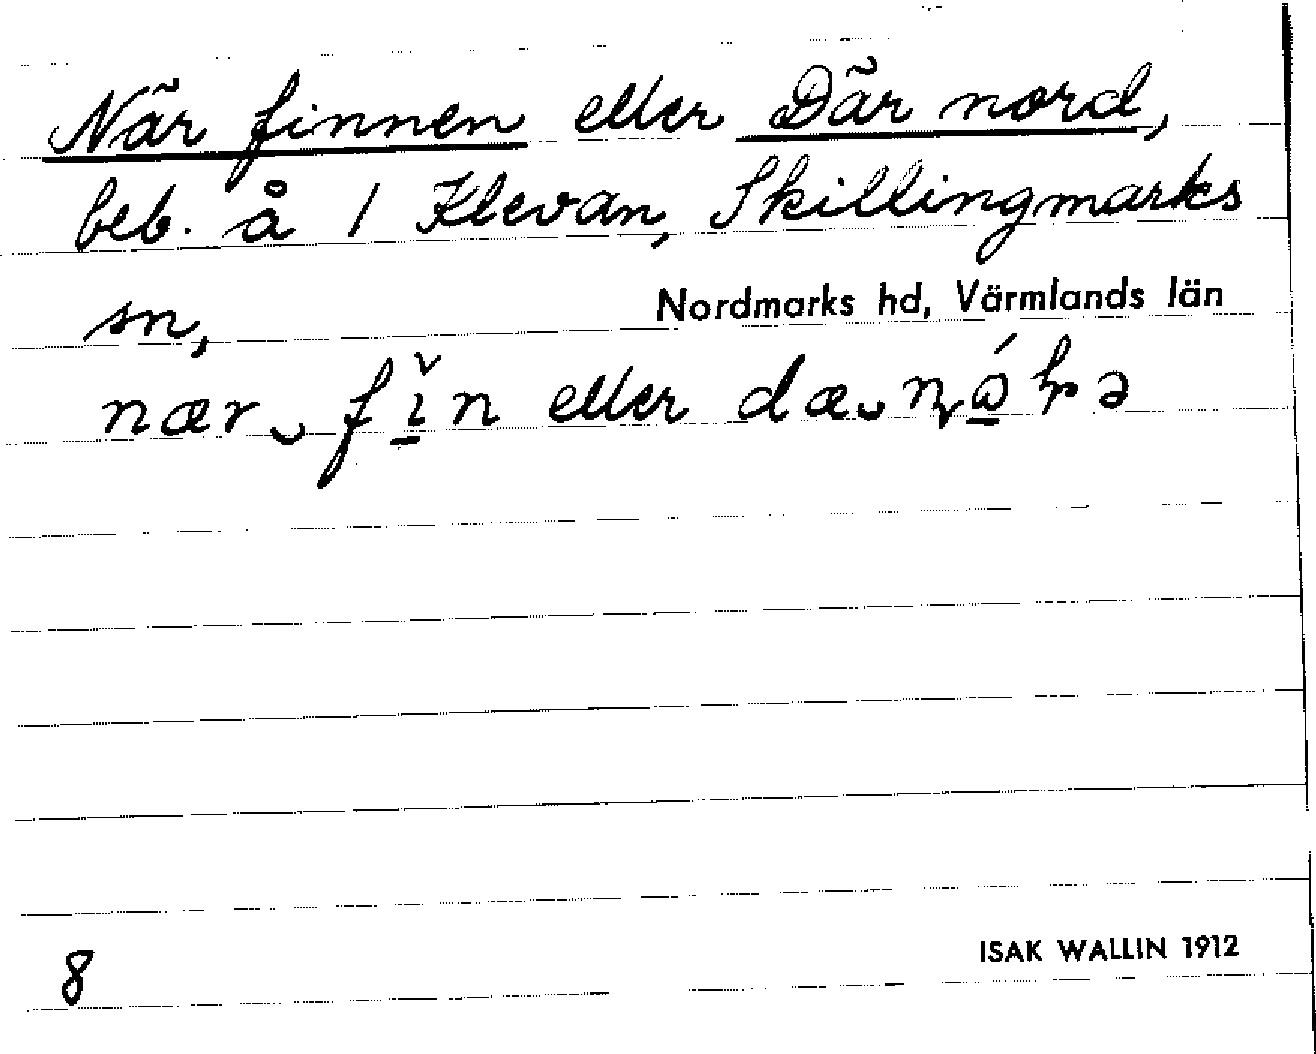 När finnen eller Där nord,
beb. å 1 Klevan, Skillingmarks
sn, Nordmarks hd, Värmlands län
nær‿fı̲̌n eller dæ‿
8 ISAK WALLIN 1912